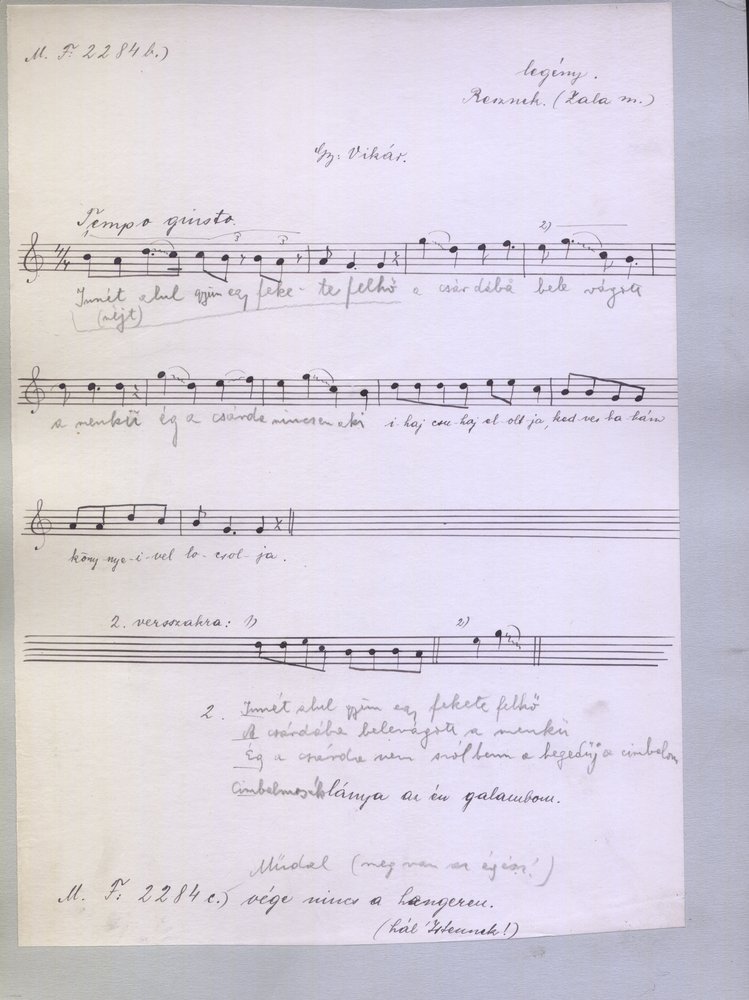 M. F. 2284 b.)
legény.
Resznek. (Zala m.)
Gy: Vikár.
Tempo giusto.
4/4 3 3 2)
Innét alul gyün egy feke-te felhő a csárdába bele vágott
(néjt)
a menkü ég a csárda nincsen aki i-haj csu-haj el-olt-ja, ked-ves ba-bám
köny-nye-i-vel lo-csol-ja.
2. versszakra: 1) 2)
2. Innét alul gyün egy fekete felhő
A csárdába belevágott a menkü
Ég a csárda nem szól benn a hegedűje cimbalom
Cimbalmosék lánya az én galambom.
Műdal (megvan az egész!)
M. F: 2284 c.) vége nincs a hengeren.
(hál' Istennek!)